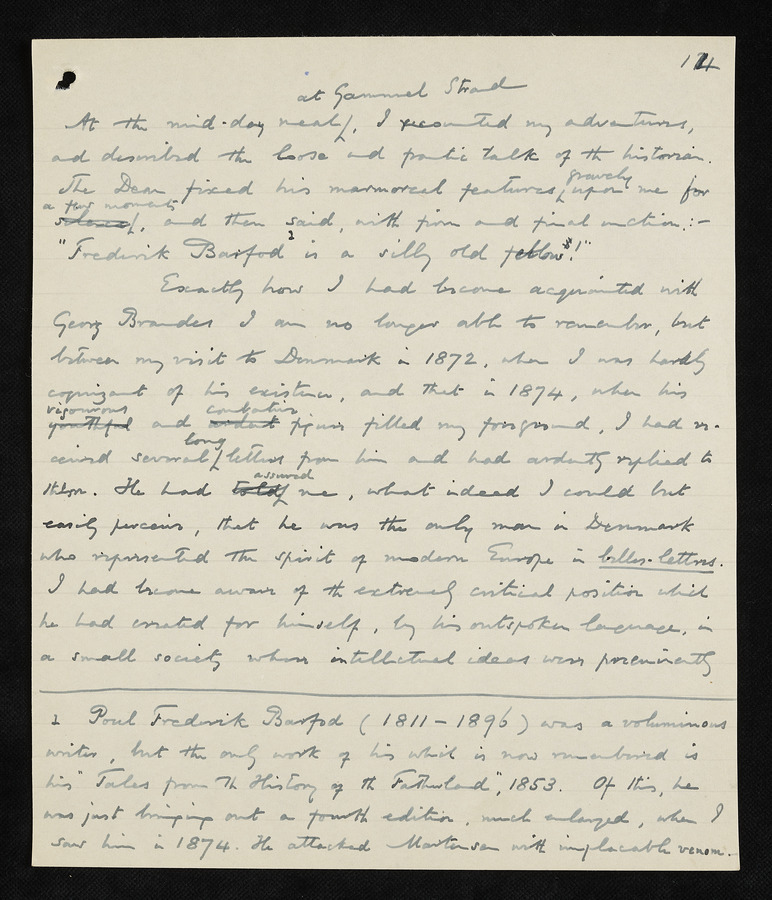 114
at Gammel Strand
At the mid-day meal, I recounted my adventures,
and described the loose and poetic talk of the historian.
gravely
The Dean fixed his marmoreal features, upon me for
a few moments
silence, and then said, with firm and final unction:-
"Frederik Barfod¹ is a silly old fellow!"
Exactly how I had become acquainted with
Georg Brandes I am no longer able to remember, but
between my visit to Denmark in 1872, when I was hardly
cognizant of his existence, and that in 1874, when his
vigourous combative
youthful and ardent figure filled my foreground, I had re-
long
ceived several letters from him and had ardently replied to
assured
them. He had told me, what indeed I could but
easily perceive, that he was the only man in Denmark
who represented the spirit of modern Europe in belles-lettres.
I had become aware of the extremely critical position which
he had created for himself, by his outspoken language, in
a small society whose intellectual ideas were preeminently
1 Poul Frederik Barfod (1811-1896) was a voluminous
writer, but the only work of his which is now remembered is
his "Tales from the History of the Fatherland", 1853. Of this, he
was just bringing out a fourth edition, much enlarged, when I
saw him in 1874. He attacked Martensen with implacable venom.